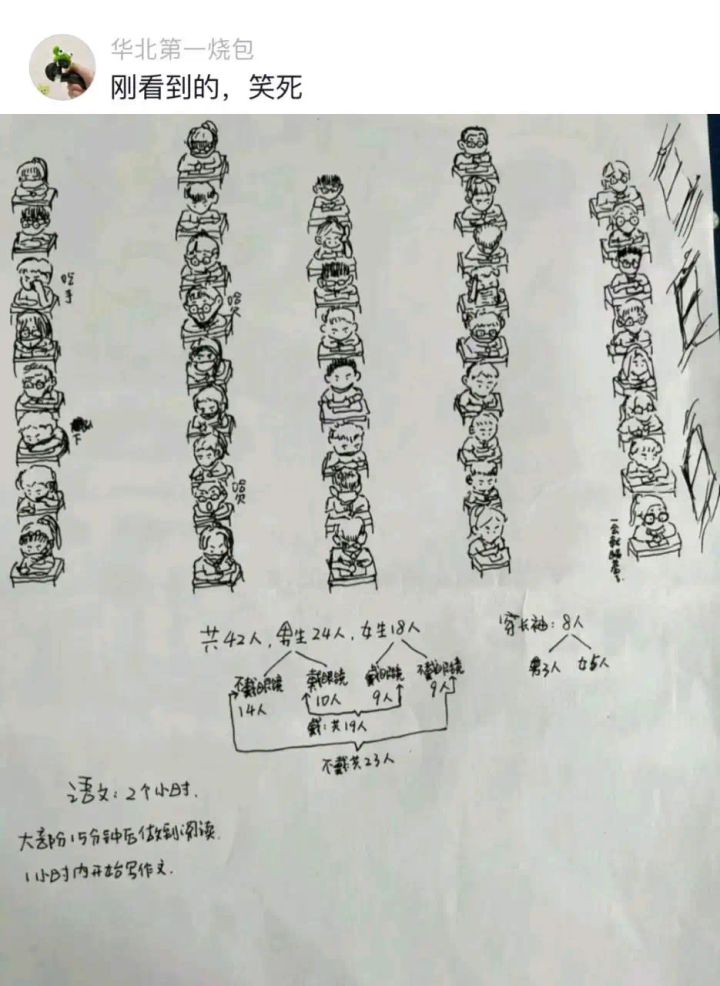 华北第一烧包
刚看到的，笑死
吃手
哈欠
趴下
哈欠
共42人，男生24人，女生18人
不戴眼镜
14人
戴眼镜
10人
戴眼镜
9人
不戴眼镜
9人
戴：共19人
不戴共23人
穿长袖：8人
男3人 女5人
语文：2个小时.
大部分15分钟后做到阅读.
1小时内开始写作文.